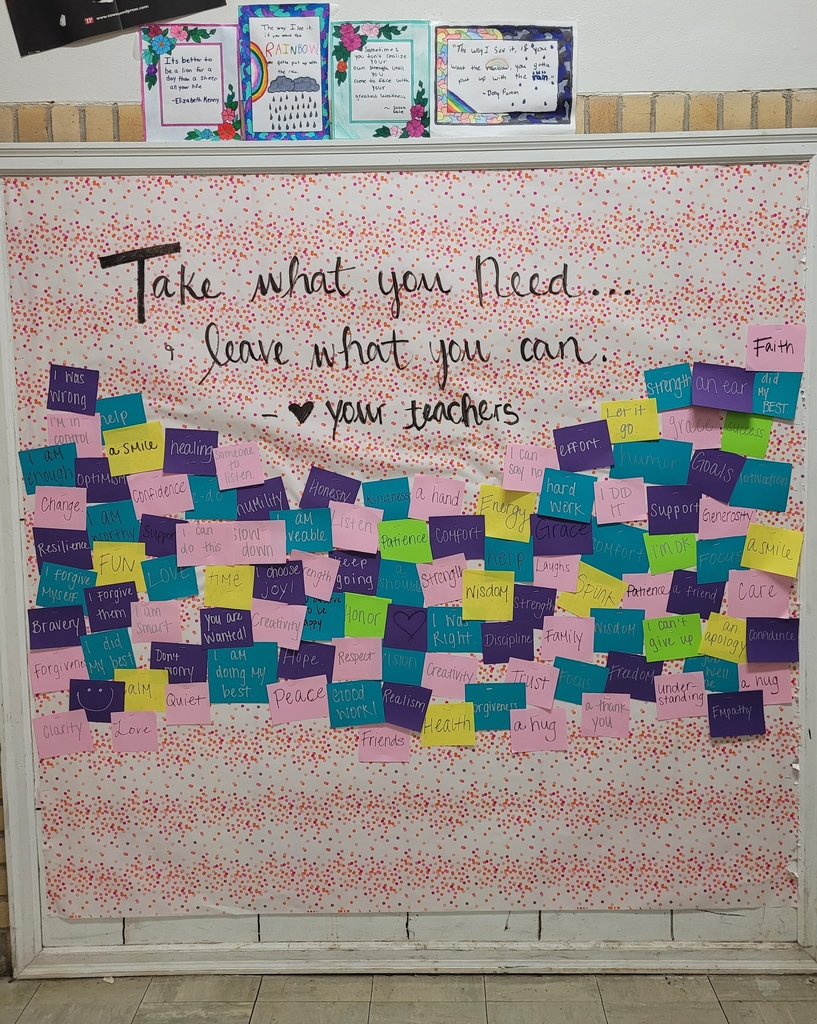 www.townwordpress.com
Its better to
be a lion for a
day than a sheep
all your life
-Elizabeth Kenny
The way I see it,
if you want the
RAINBOW
gotta put up with
the rain
Sometimes
you don't realize
your
own strength until
you
come to face with
your
greatest weakness
"The way I see it, if you
want the rainbow, you gotta
put up with the rain
- Dolly Parton
Take what you Need...
& leave what you can.
- ♥ your teachers
Faith
I was
wrong
help
I'm in
control
a smile
healing
someone
to
listen
I am
enough
Confidence
Humility
Honesty
kindness
a hand
Energy
I can
say no
effort
Let it
go
grace
strength
an ear
did
My
BEST
success
humor
Goals
Motivation
hard
work
I DID
IT
Support
Generosity
Change
I am
worthy
Support
I can
do this
SLOW
down
Listen
Patience
Comfort
Grace
Comfort
I'm OK
Focus
a smile
Resilience
FUN
LOVE
TIME
I choose
joy!
keep
going
Strength
help
Laughs
Wisdom
Spunk
Patience
a friend
Care
I forgive
Myself
I forgive
them
I am
smart
Bravery
You are
Wanted!
Creativity
Honor
I was
Right
Strength
Discipline
Family
Wisdom
I can't
give up
an
apology
Confidence
I did
My best
Don't
worry
I am
doing My
best
Hope
Respect
Creativity
Trust
Focus
Freedom
under-
standing
a hug
Quiet
Peace
Good
Work!
Realism
Health
a hug
a thank
you
Empathy
Clarity
Love
Friends